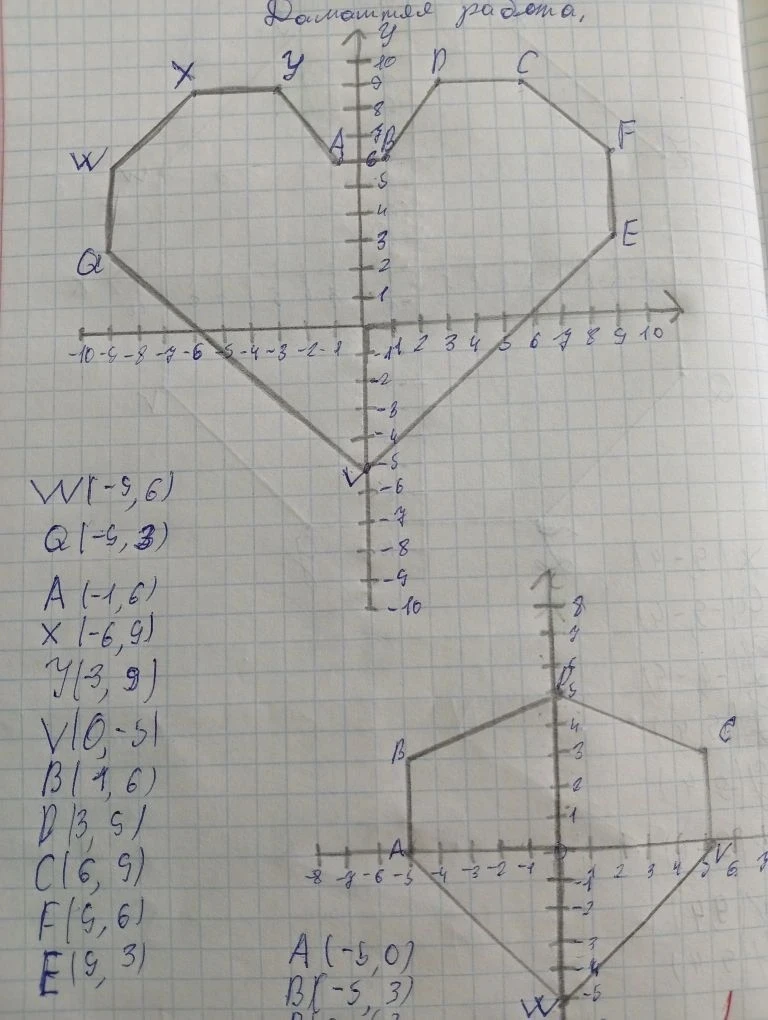 Домашняя работа.
У
10
X У D C
9
8
7
W A B F
6
5
4
Q 3 E
2
1
-10 -9 -8 -7 -6 -5 -4 -3 -2 -1 1 2 3 4 5 6 7 8 9 10
-1
-2
-3
-4
V -5
-6
-7
-8
-9
-10
W(-9,6)
Q(-9,3)
A(-1,6)
X(-6,9)
У(3,9)
V(0,-5)
B(1,6)
D(3,9)
C(6,9)
F(9,6)
E(9,3)
8
7
6
5
4 C
B 3
2
1
A 0 V
-8 -7 -6 -5 -4 -3 -2 -1 1 2 3 4 5 6 7
-1
-2
-3
-4
W -5
A(-5,0)
B(-5,3)